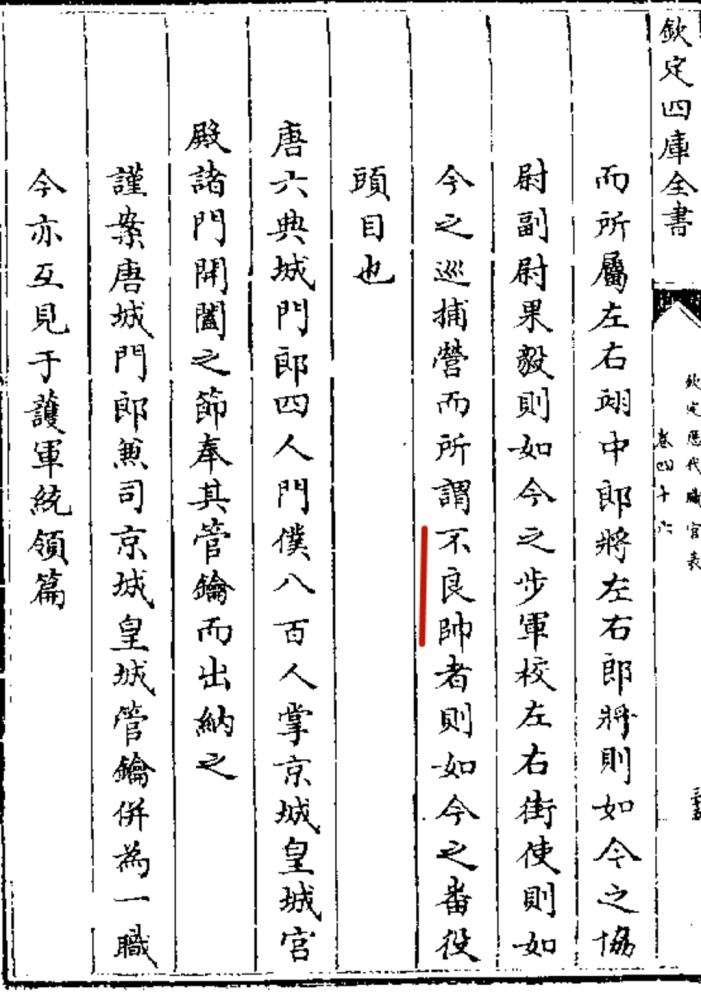 欽定四庫全書
欽定歷代職官表
卷四十六
而所屬左右翊中郎將左右郎將則如今之協
尉副尉果毅則如今之步軍校左右街使則如
今之巡捕營而所謂不良帥者則如今之番役
頭目也
唐六典城門郎四人門僕八百人掌京城皇城宮
殿諸門開闔之節奉其管鑰而出納之
謹案唐城門郎兼司京城皇城管鑰併為一職
今亦互見于護軍統領篇